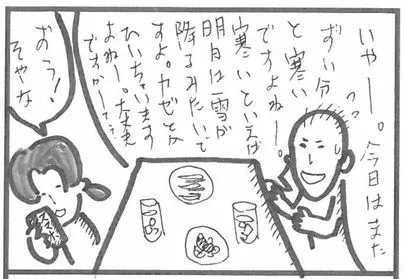 いやー。今日はまた
ずい分
と寒い
ですよねー。
寒いといえば
明日は雪が
降るみたいで
すよ。カゼとか
ひいちゃいます
よねー。大丈夫
ですかー？
おう！
そやな